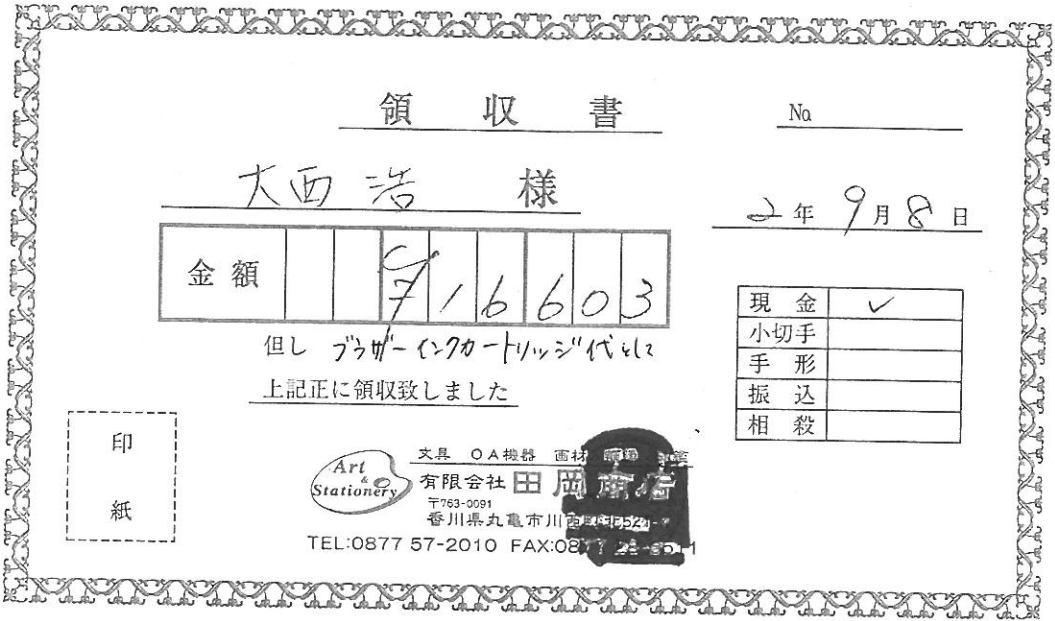 領 収 書
No
大西 浩 様
2年 9月 8日
金額 ¥16603
但し ブラザーインクカートリッジ代として
上記正に領収致しました
現金 ✓
小切手
手形
振込
相殺
印
紙
Art & Stationery
文具 OA機器 画材
有限会社 田岡商店
〒763-0091
香川県丸亀市川西町北521-7
TEL:0877 57-2010 FAX:0877